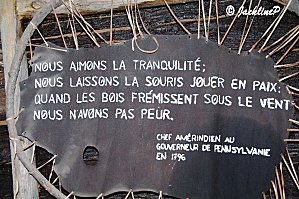 © JacklineP
NOUS AIMONS LA TRANQUILITÉ;
NOUS LAISSONS LA SOURIS JOUER EN PAIX;
QUAND LES BOIS FRÉMISSENT SOUS LE VENT
NOUS N'AVONS PAS PEUR.
CHEF AMÉRINDIEN AU
GOUVERNEUR DE PENNSYLVANIE
EN 1796